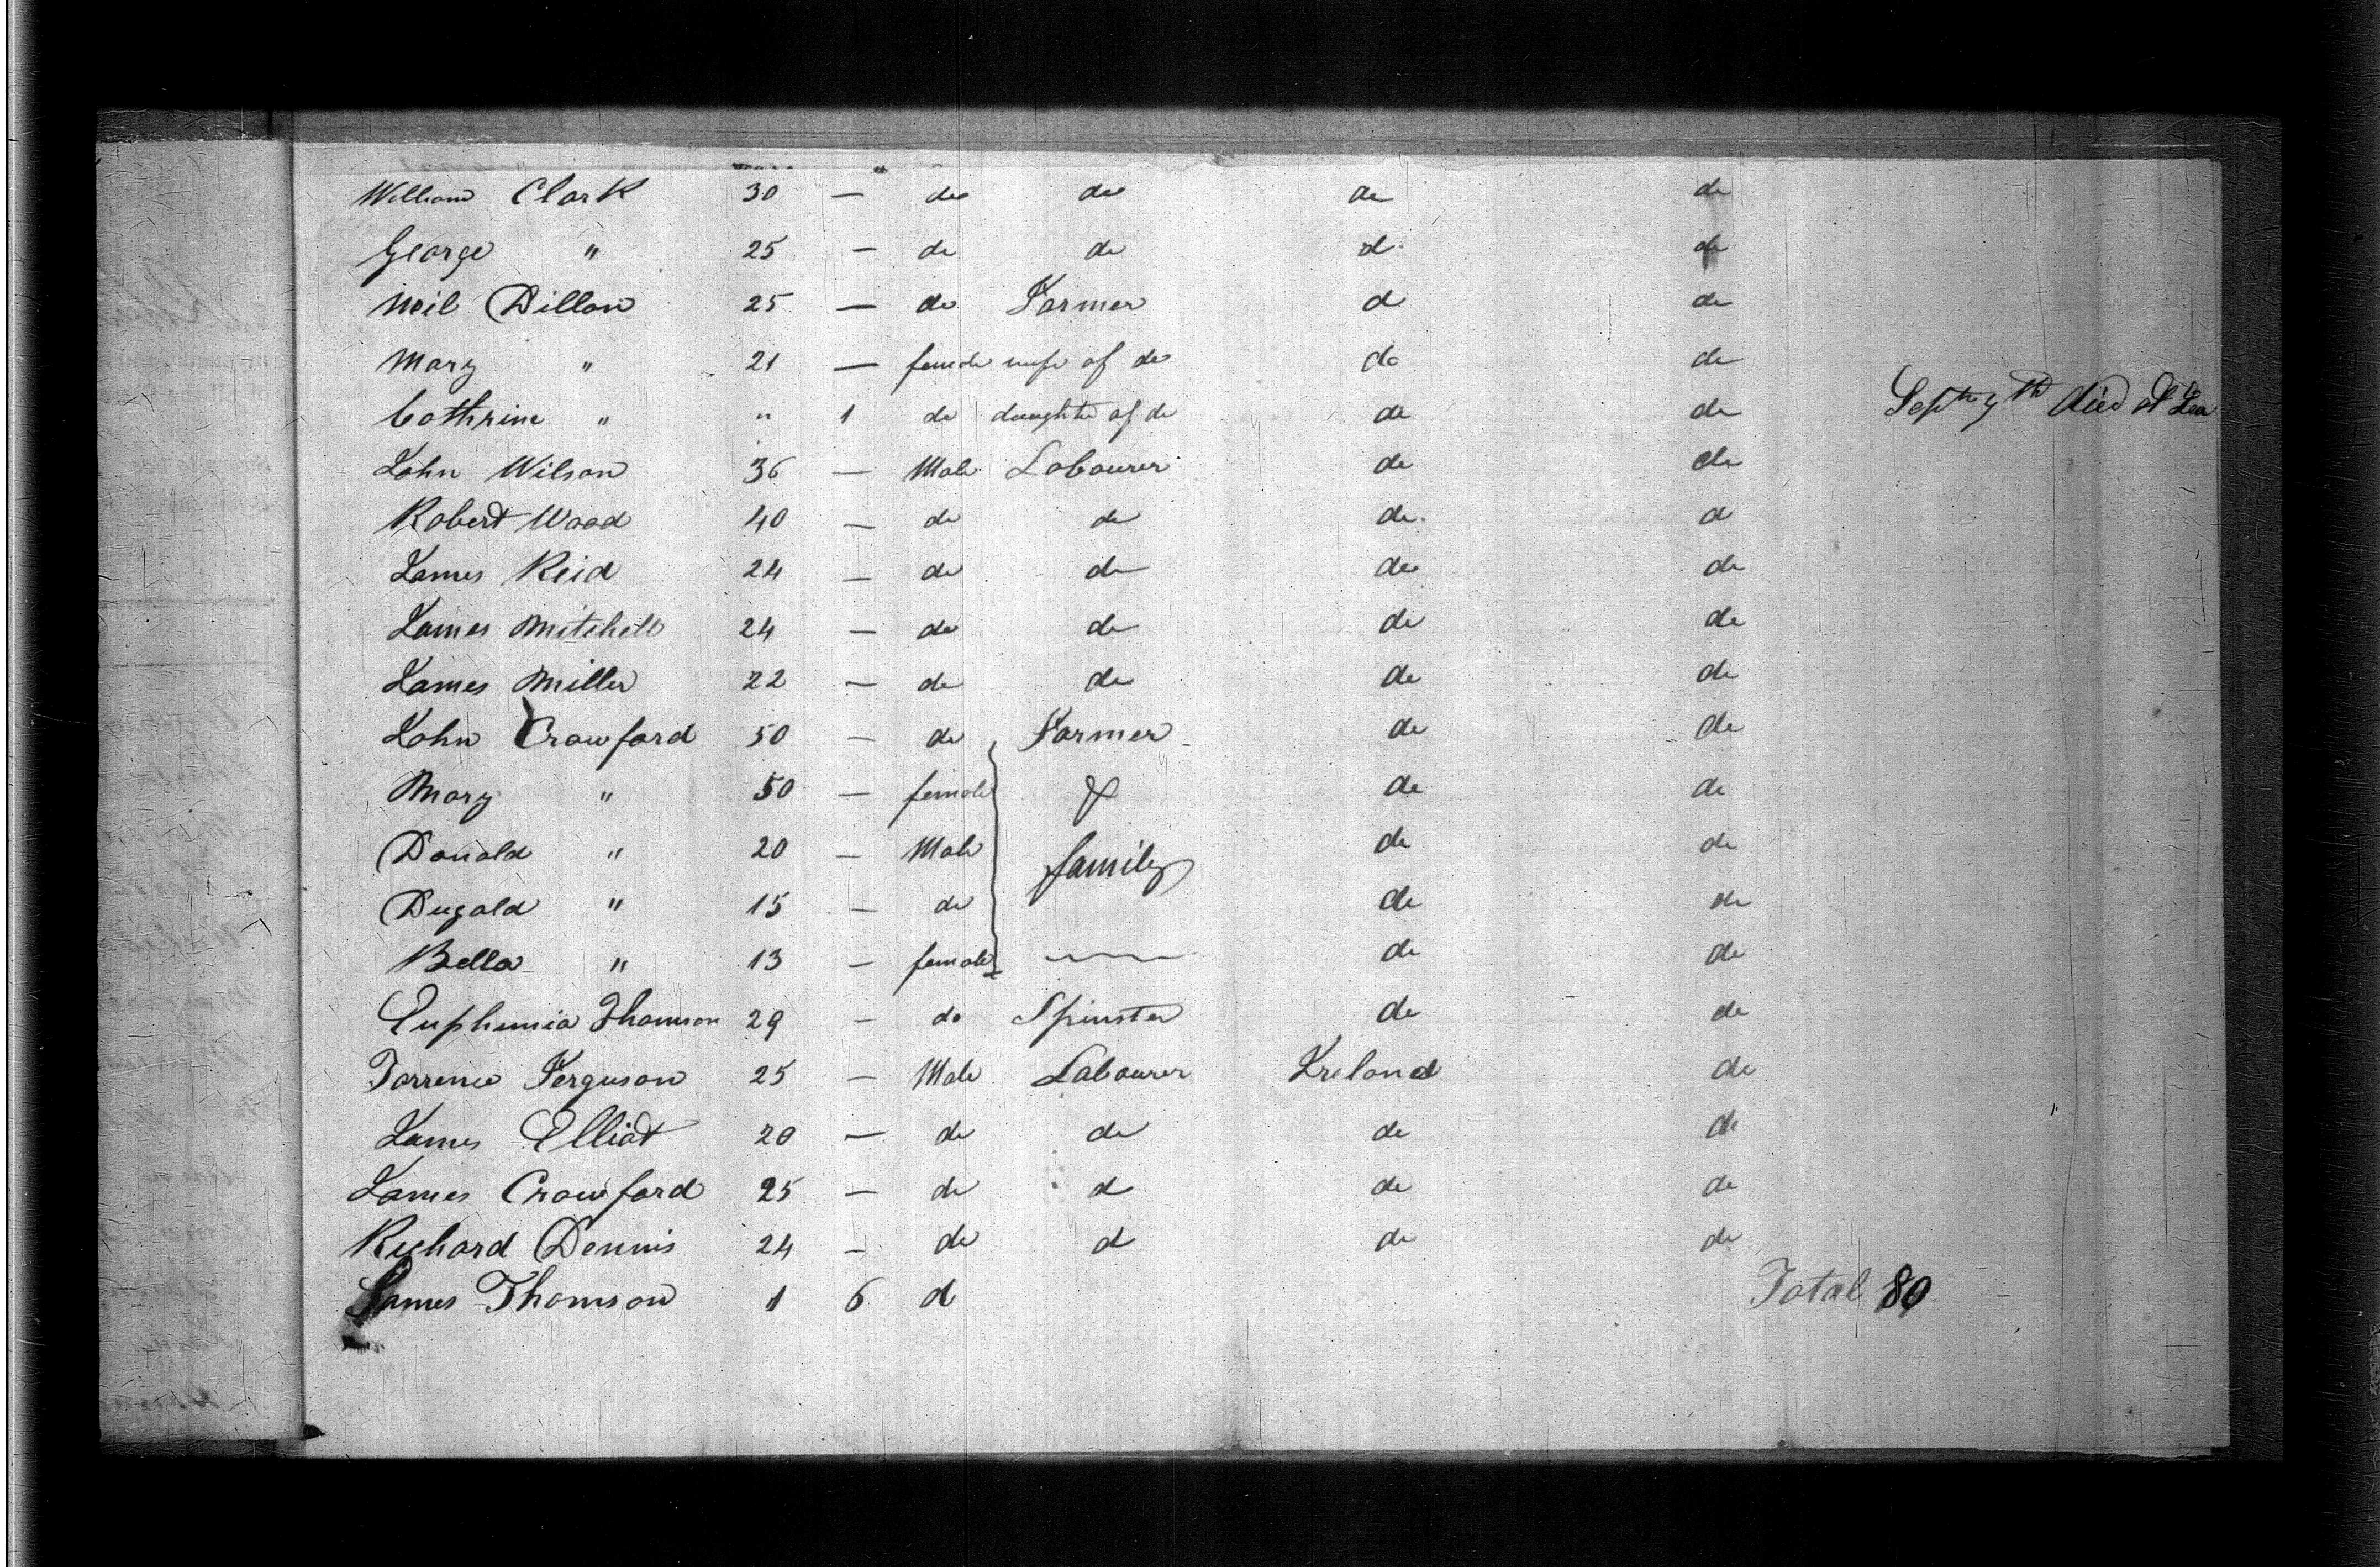 William Clark 30 — do do do do
George " 25 — do do do do
Neil Dillon 25 — do Farmer do do
Mary " 21 — female wife of do do do
Cathrine " " 1 do daughter of do do do Septr 7th died at Sea
John Wilson 36 — Male Labourer do do
Robert Wood 40 — do do do do
James Reid 24 — do do do do
James Mitchell 24 — do do do do
James Miller 22 — do do do do
John Crawford 50 — do Farmer do do
Mary " 50 — female & do do
Donald " 20 — Male family do do
Dugald " 15 — do do do
Bella " 13 — female do do
Euphemia Thomson 29 — do Spinster do do
Torrence Ferguson 25 — Male Labourer Ireland do
James Elliot 20 — do do do do
James Crawford 25 — do do do do
Richard Dennis 24 — do do do do
James Thomson 1 6 d Total 80